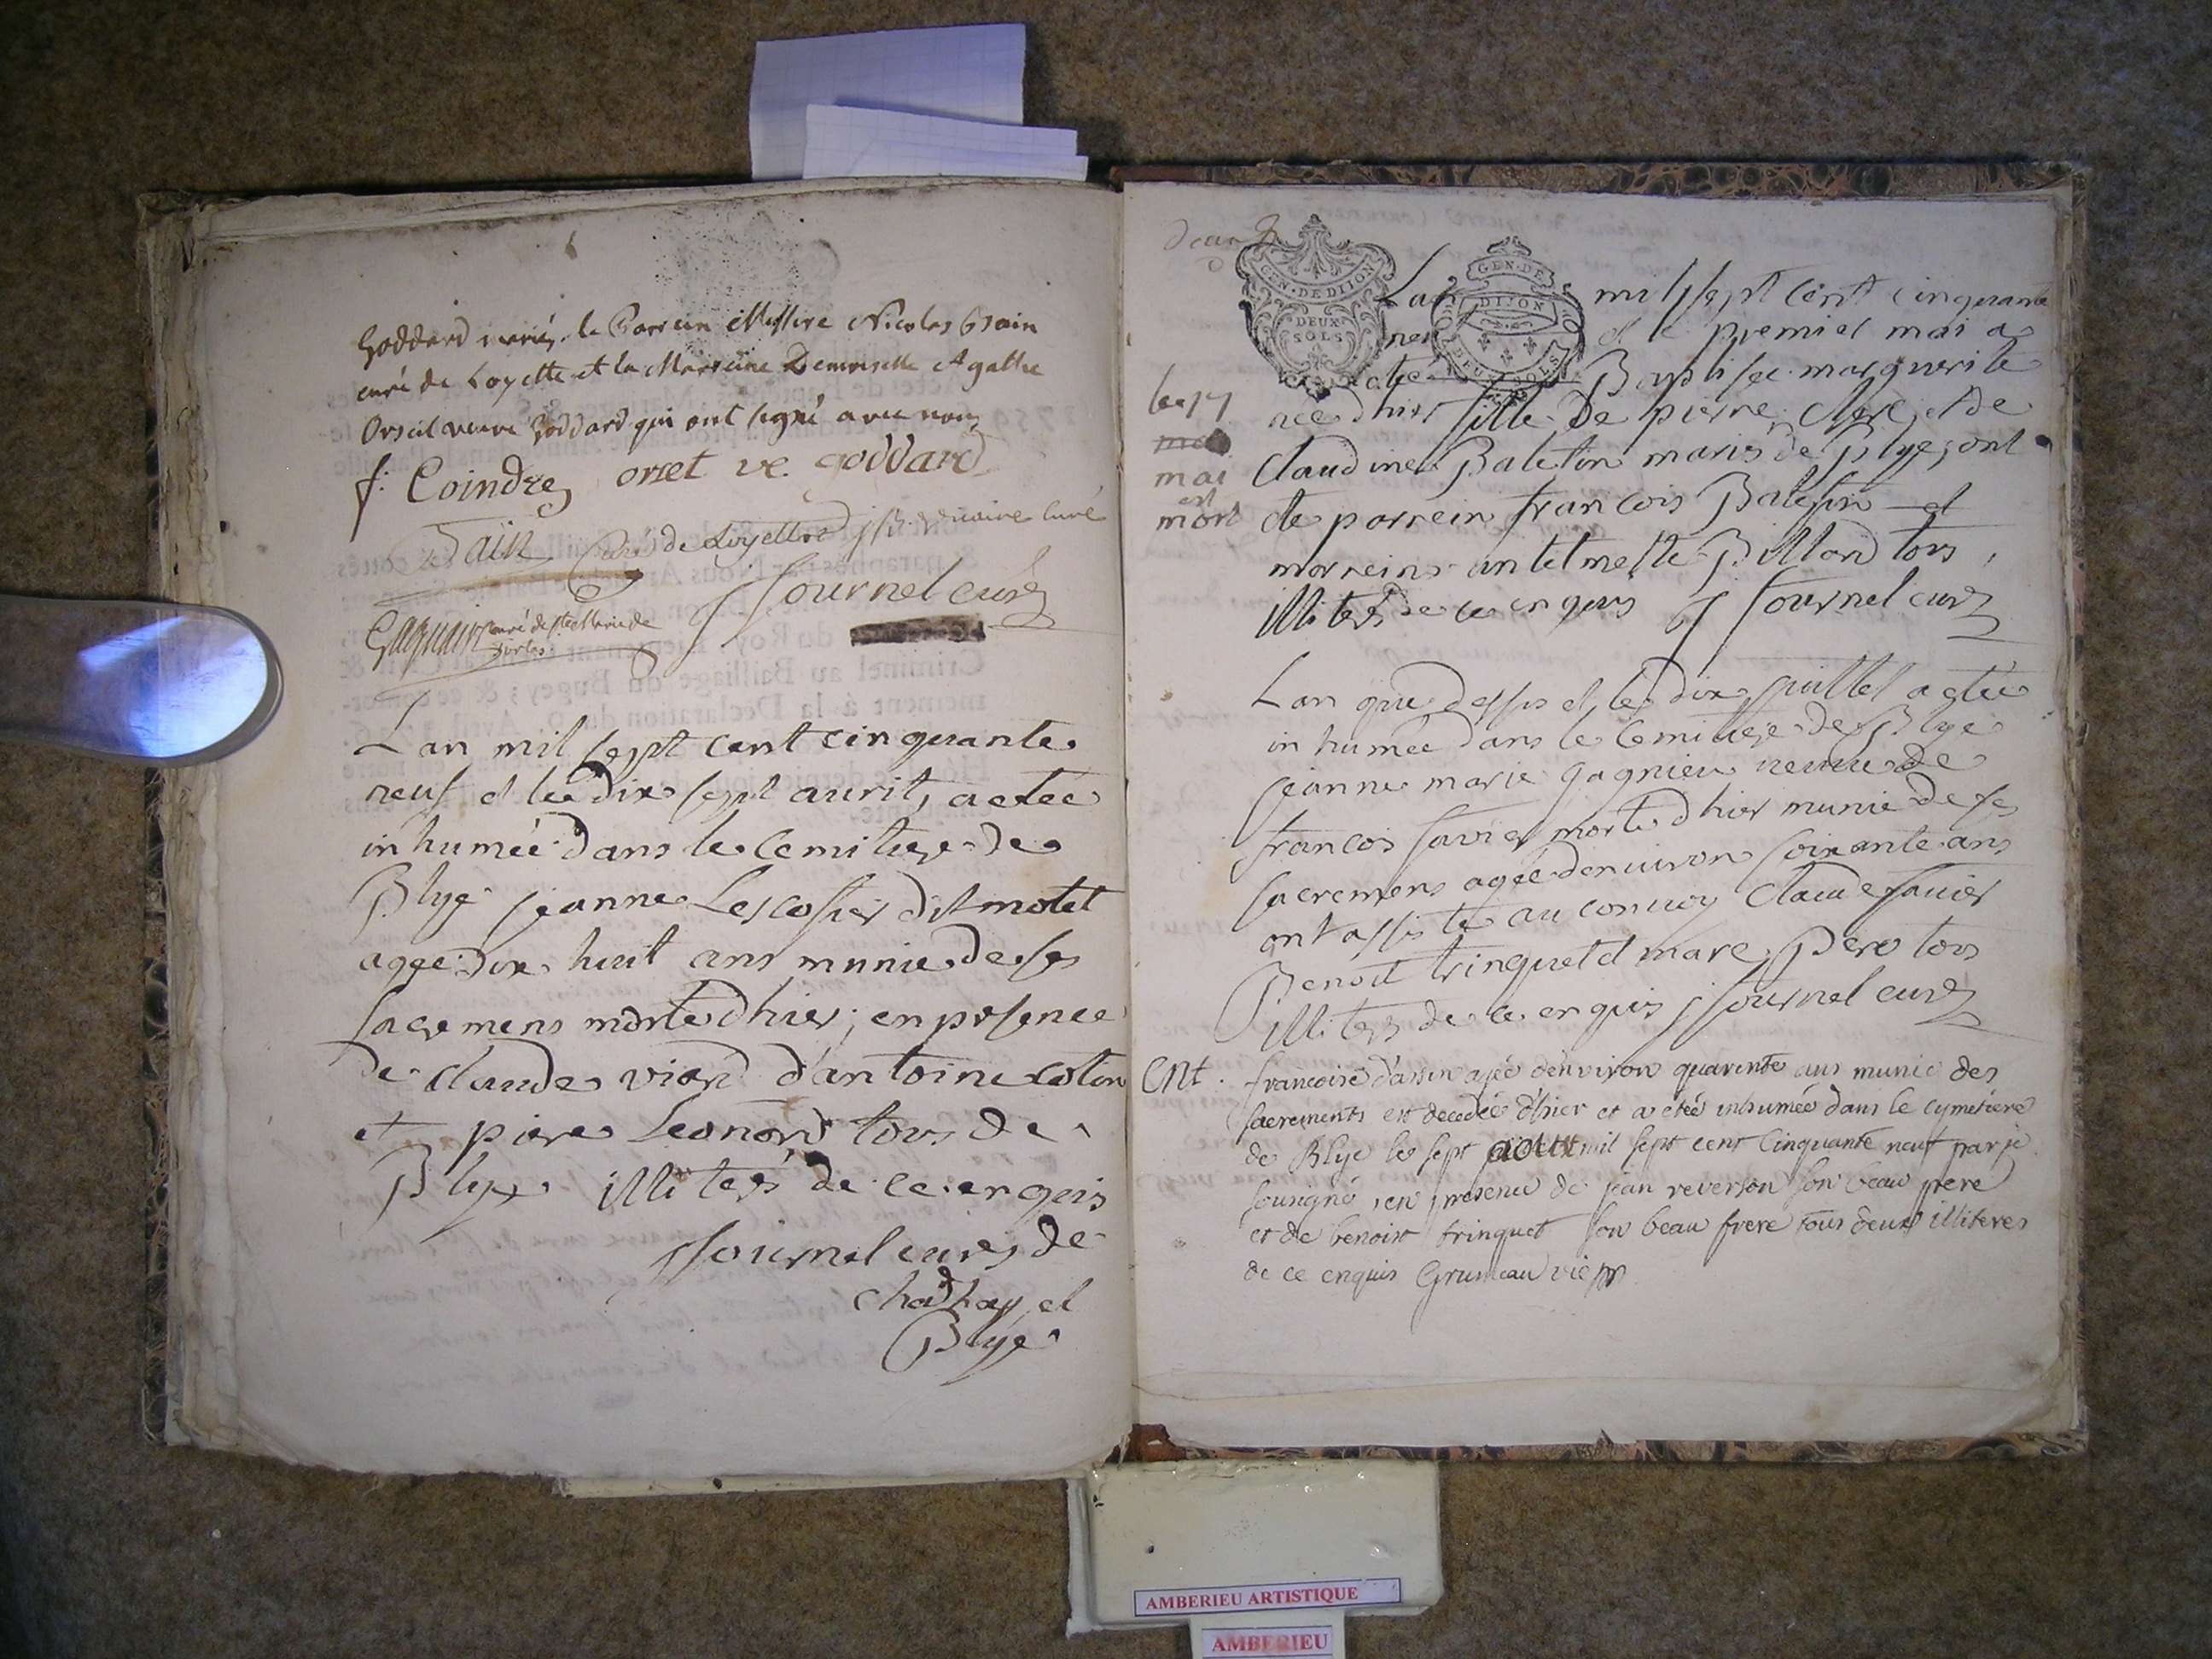 Goddard mariés le Parrein Messire Nicolas Gsain
curé de Loyette et la Marreine Demoiselle Agathe
Orscel veuve Goddard qui ont signé avec nous
f. Coindre orset ve goddard
curé de Loyettes vicaire curé
J Journel curé
curé de ste Marie de
Lan mil sept cent cinquante
neuf et le dix sept avril, a etee
inhumée dans le Cemitiere de
Blye jeanne Lescosier dit motet
agee dix huit ans munie de ses
sacremens morte dhier; en presence
de claude viard d'antoine coton
et piere Leonord tous de
Blye illiterés de ce enquis
J Journel curés de
chadhay et
Blye
Lan mil sept cent cinquante
neuf et le premier mai a
etée Baptisee marguerite
nee dhier fille de pierre Clerc et de
claudine Baletin mariés de Blye; ont
ete parrein francois Baletin et
marreine antelmette Billard tous
illiterés de ce enquis J Journel curé
le 17
mai
mai
est
mort
Lan que dessus et le dix juillet a etee
inhumée dans le Cemitiere de Blye
jeanne marie gagnieu veuve de
francois savier morte dhier munie de ses
sacremens agée denviron soixante ans
ont assisté au convoy Claude savier
Benoit trinquet et marc Pero tous
illiterés de ce enquis J Journel curé
Ent. francoise dassin agée d'environ quarente ans munie des
sacrements est decedée d'hier et a etée inhumée dans le cymetiere
de Blye le sept aout mil sept cent cinquante neuf par je
sousigné, en presence de jean reverson son beau pere
et de benoist trinquet son beau frere tous deux illiteres
de ce enquis Grumeau vic
GEN. DE DIJON
DEUX
SOLS
GEN. DE
DIJON
DEUX SOLS
AMBERIEU ARTISTIQUE
AMBERIEU